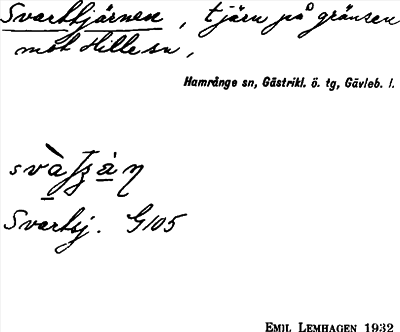 Svarttjärnen, tjärn på gränsen
mot Hille sn,
Hamrånge sn, Gästrikl. ö. tg, Gävleb. l.
Svartsj. G105
EMIL LEMHAGEN 1932